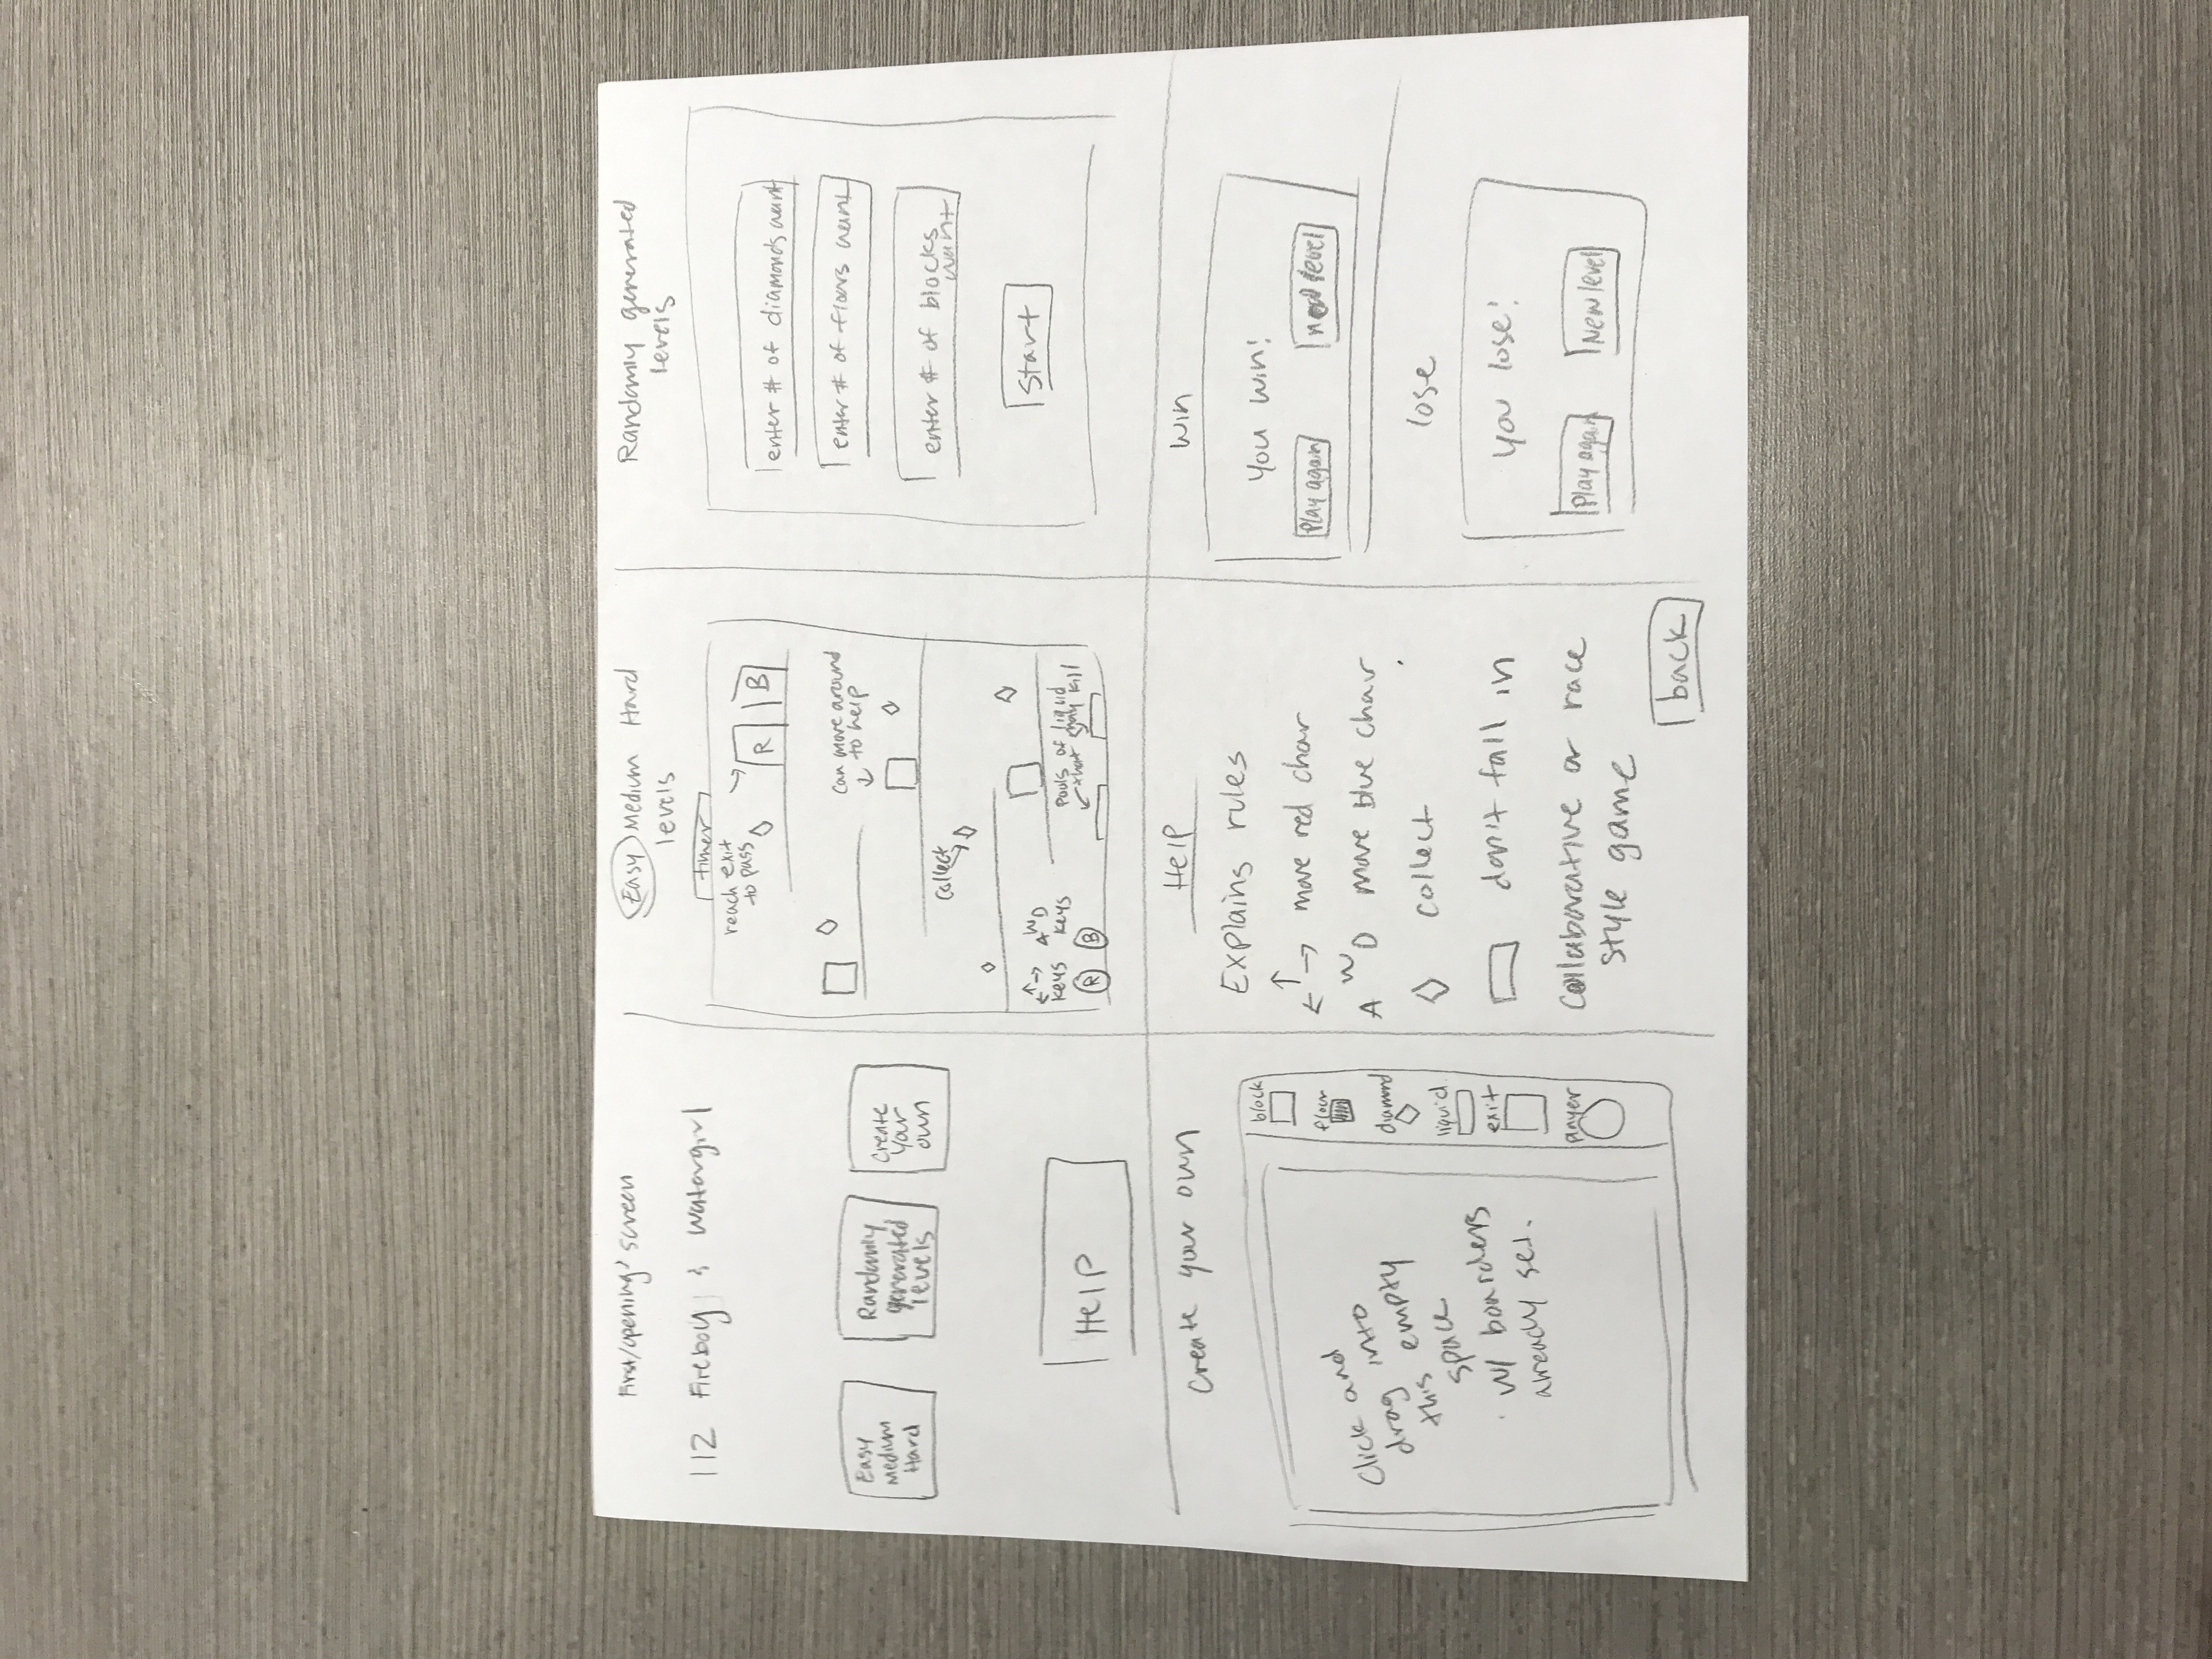 First/opening screen
112 Fireboy & Watergirl
Easy
Medium
Hard
Randamly
generated
levels
Create
Your
own
Help
Easy Medium Hard
levels
timer
reach exit
to pass
R
B
Can move around
to help
Collect
keys
W
A D
keys
R
B
Pools of liquid
that may kill
Randamly generated
levels
enter # of diamonds want
enter # of floors want
enter # of blocks
want
Start
Create your own
Click and
drag into
this empty
space
w/ boarders
already set.
block
floor
diamond
liquid
exit
player
Help
Explains rules
move red char
A W D move blue char
collect
don't fall in
Collaborative or race
style game
back
Win
You win!
Play again
new level
lose
You lose!
Play again
New level